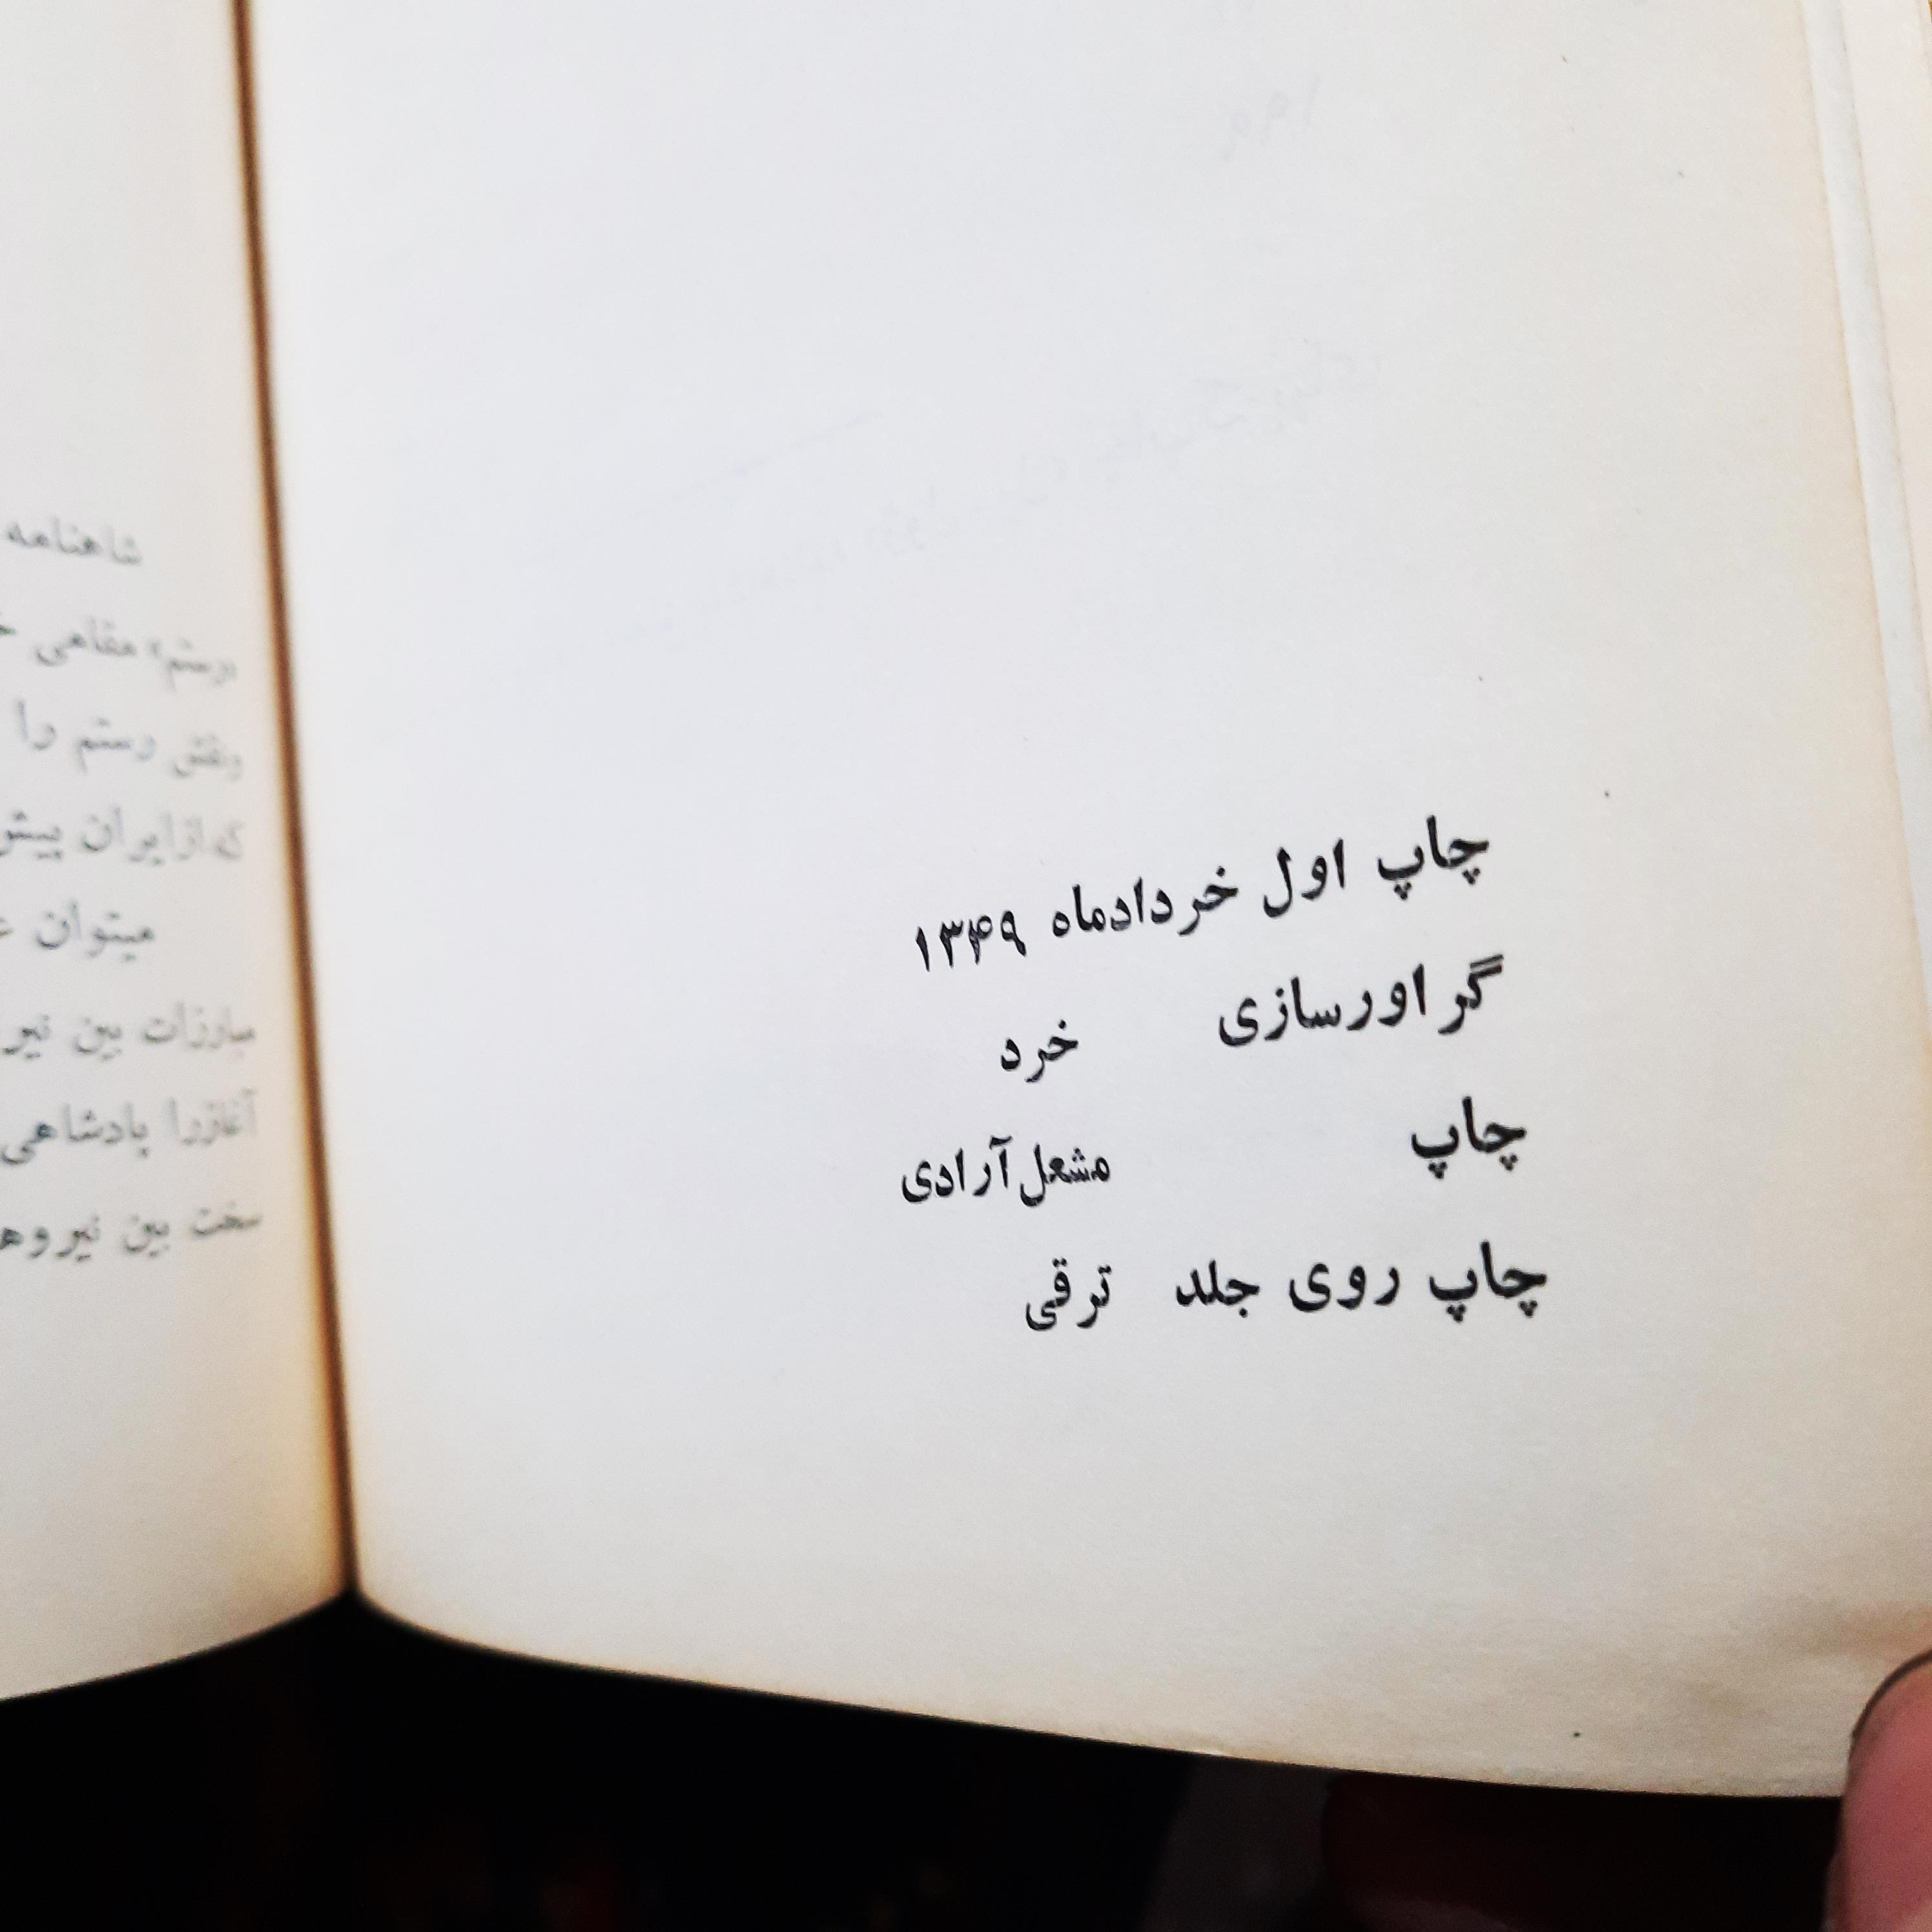 چاپ اول خردادماه ۱۳۴۹
گراورسازی خرد
چاپ مشعل‌آرادی
چاپ روی جلد ترقی
شاهنامه
«رستم» مقامی
ونقش رستم را
که از ایران
میتوان
مبارزات بین
آغاز را پادشاهی
سخت بین